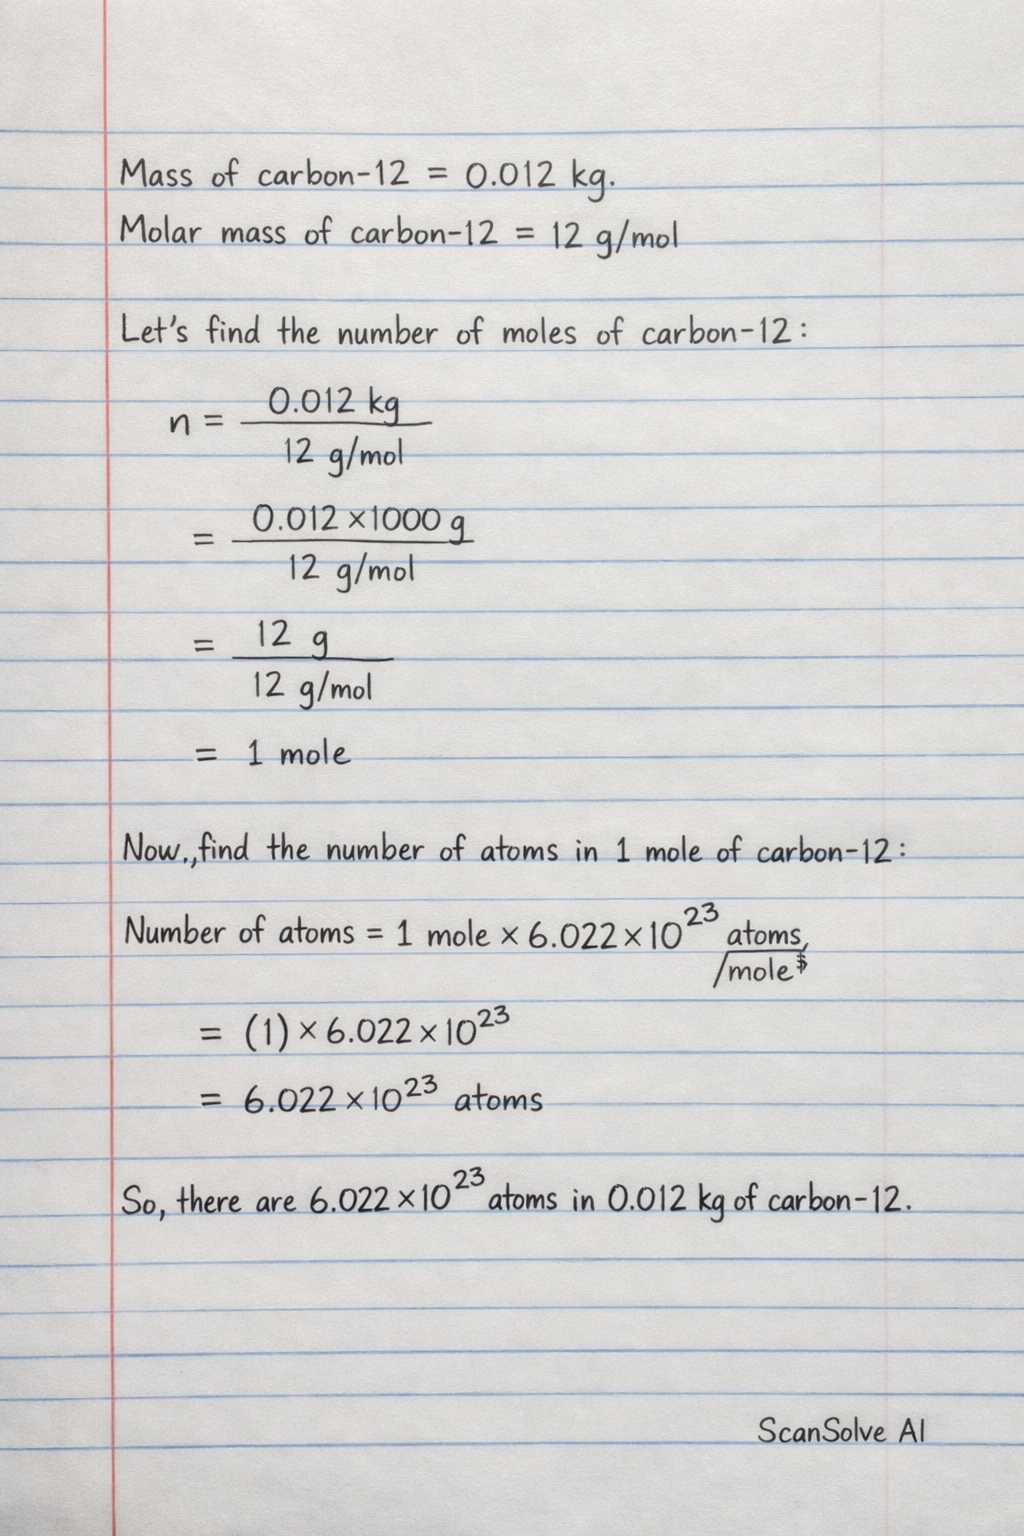 Mass of carbon-12 = 0.012 kg.
Molar mass of carbon-12 = 12 g/mol
Let's find the number of moles of carbon-12:
n = 0.012 kg
12 g/mol
= 0.012 ×1000 g
12 g/mol
= 12 g
12 g/mol
= 1 mole
Now.,find the number of atoms in 1 mole of carbon-12:
Number of atoms = 1 mole × 6.022×10²³ atoms,
/mole
= (1) × 6.022×10²³
= 6.022×10²³ atoms
So, there are 6.022×10²³ atoms in 0.012 kg of carbon-12.
ScanSolve AI